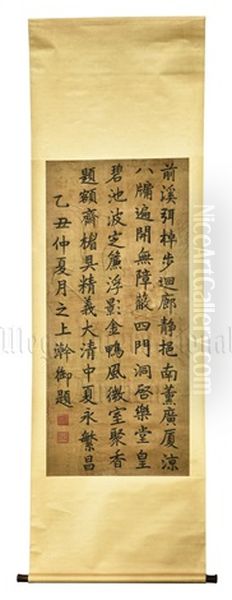 前溪弭棹步迴廊静挹南薰廣厦涼
八牖遍開無障蔽四門洞啓樂堂皇
碧池波定簾浮影金鴨風微室聚香
題額齊楣具精義大清中夏永繁昌
乙丑仲夏月之上澣御題
www.NiceArtGallery.com